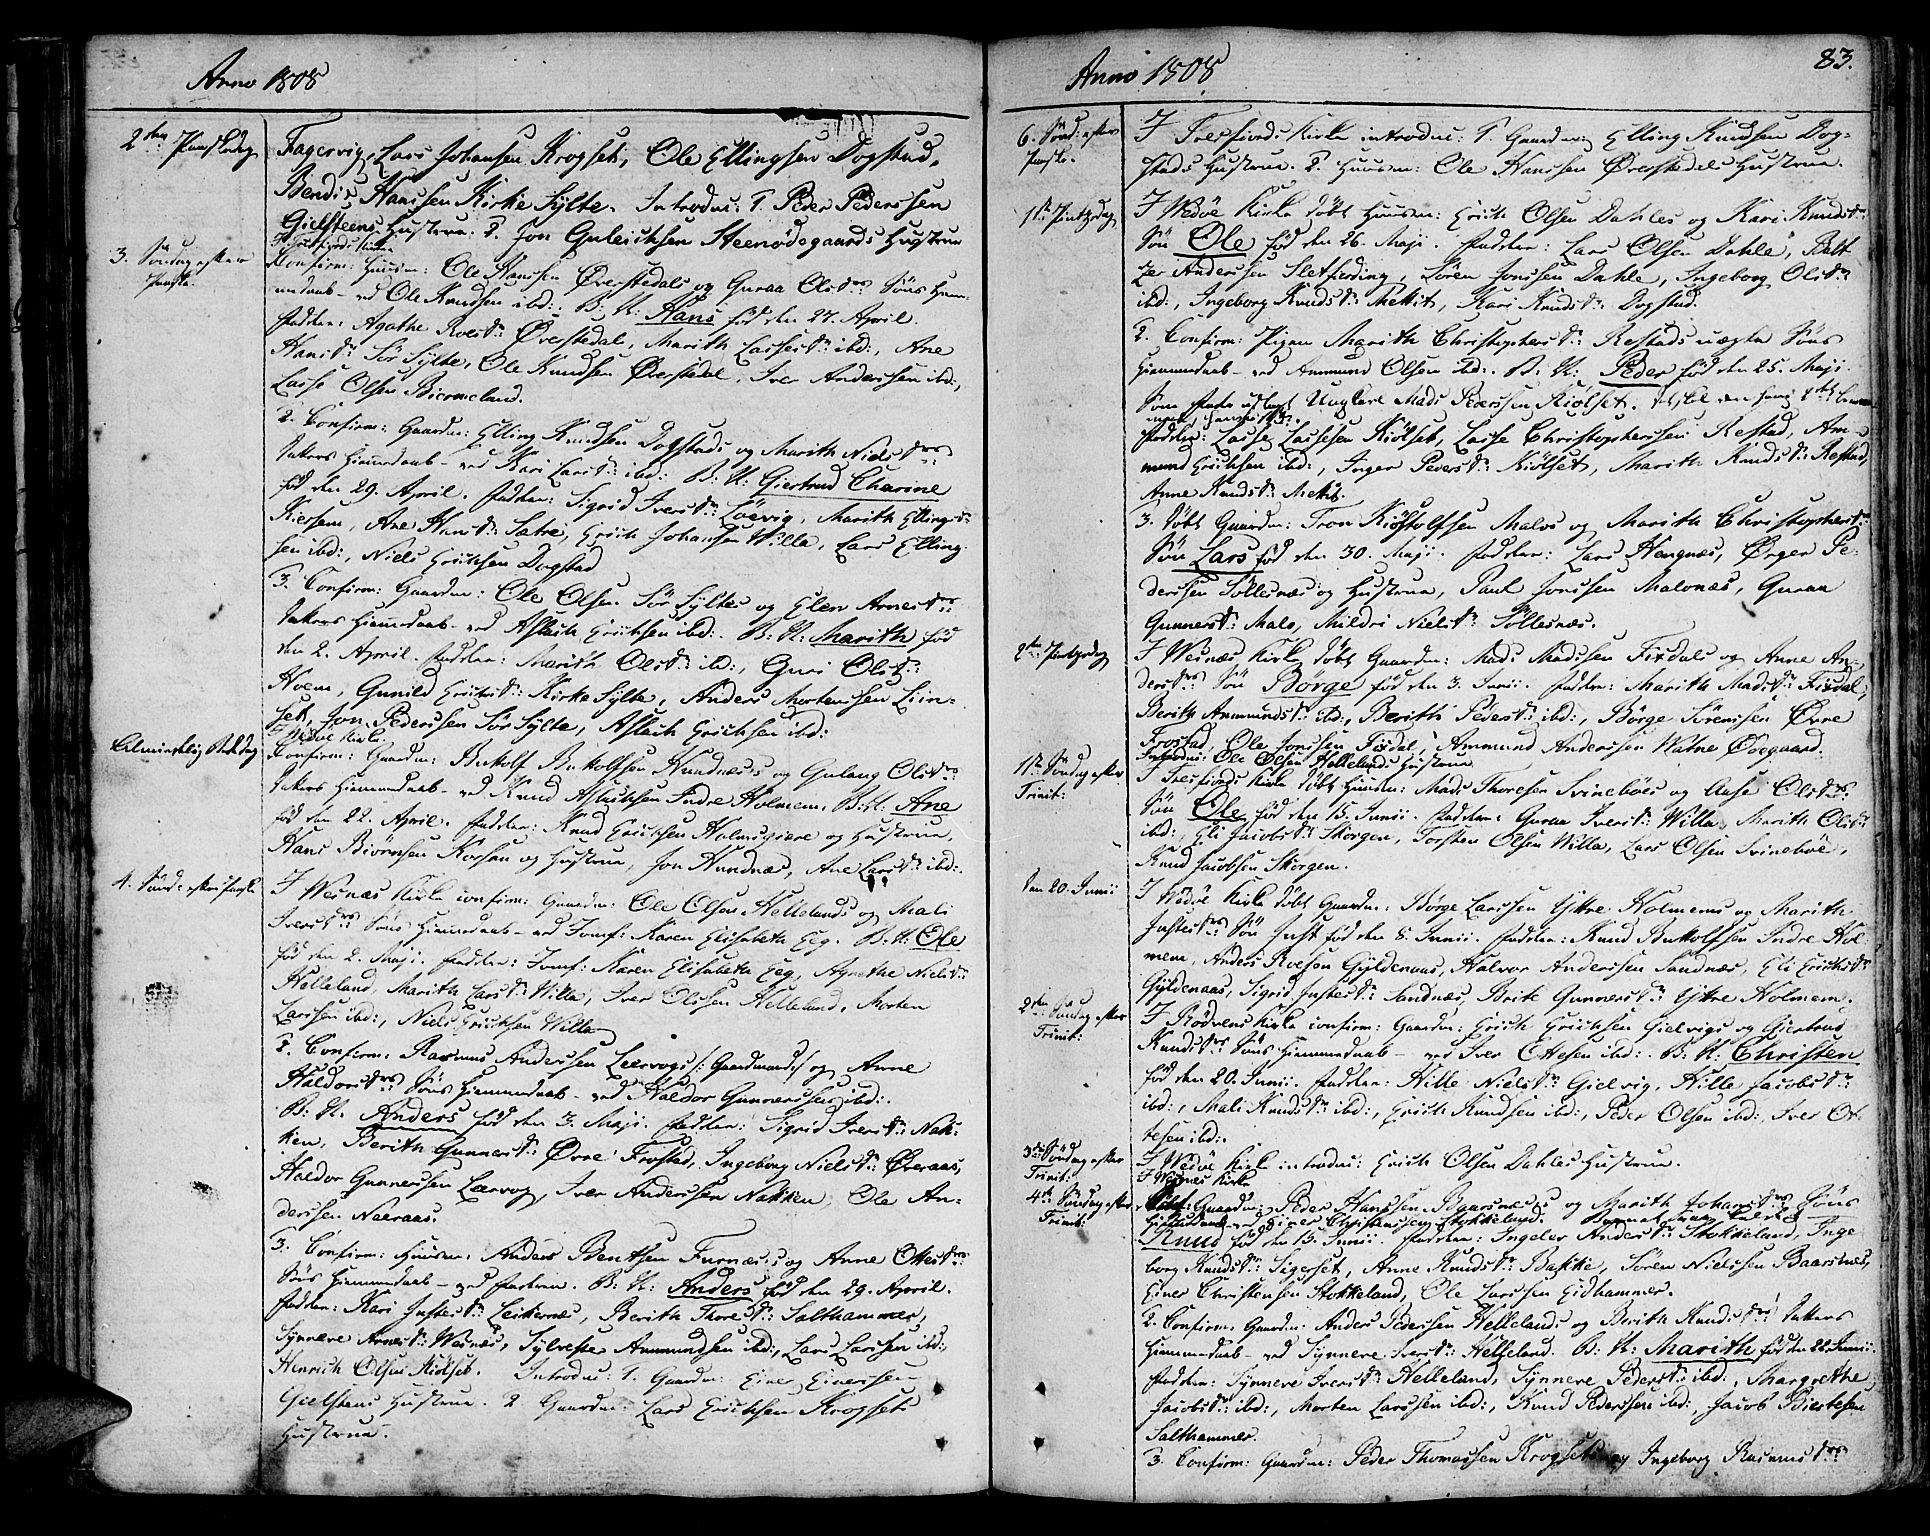 Anno 1808
2den Paaskedag
Fagervig, Lars Johansen Krogset, Ole Ellingsen Dogstad,
Bendix Hansen Kirke Sylte. Introdu: 1. Peder Pedersen
Gielsteens Hustrue: 2. Jon Gulichsen Steenødegaards Hustrue
3. Søndag efter Paaske.
I Tresfiords Kirke
Confirm: Huusm: Ole Hansen Øverstedals og Guraa Olsdrs Søns Hiem-
medaab ved Ole Knudsen ibd: B: N: Hans fød den 27. April.
Faddere: Agathe Roesdr: Øverstedal, Marith Lassesdr: ibd:, Ane
Hansdr: Sør Sylte, Ole Knudsen Øverstedal, Iver Anderssen ibd:,
Lasse Olsen Biermeland.
2. Confirm: Gaardm: Elling Knudsen Dogstads og Marith Nielsdrs
Datters Hiemmedaab ved Kari Larsdr: ibd: B: N: Giertrud Charine
fød den 29. April. Faddere: Sigrid Iversdr: Løevig, Marith Ellingsdr:
Kiersem, Ane Hansdr: Sætre, Erich Johansen Willa, Lars Elling-
sen ibd:, Niels Erichsen Dogstad
3. Confirm: Gaardm: Ole Olsen Sør Syltes og Elen Arnesdrs
Datters Hiemmedaab ved Aslach Erichsen ibd: B: N: Marith fød
den 2. April. Faddere: Marith Olsdr: ibd:, Guri Olsdr:
Hoem, Gunild Erichsdr: Kirke Sylte, Anders Mortensen Liin-
set, Jon Pederssen Sør Sylte, Aslach Erichsen ibd:
Almindelig Bededag
I Wedøe Kirke
Confirm: Gaardm: Botolf Botolfsen Hundnæs og Gulaug Olsdrs
Datters Hiemmedaab ved Knud Aslachsen Indre Holmem. B: N: Ane
fød den 22. April. Faddere: Knud Erichsen Holmsgiære og Hustrue,
Hans Biørnsen Korsan og Hustrue, Jon Hundnæs, Ane Larsdr: ibd:
4. Sønd: efter Paaske
I Wesnæs Kirke confirm: Gaardm: Ole Olsen Hellelands og Mali
Iversdrs Søns Hiemmedaab ved Jomf: Karen Elisabeth Eeg. B: N: Ole
fød den 2. Maji. Faddere: Jomf: Karen Elisabeth Eeg, Agnethe Nielsdr:
Helleland, Marith Larsdr: Willa, Iver Olsen Helleland, Morten
Larssen ibd:, Niels Erichsen Willa
2. Confirm: Rasmus Anderssen Leervogs /: Gaardmand :/ og Anne
Haldorsdrs Søns Hiemmedaab ved Haldor Gunnerssen ibd:
B: N: Anders fød den 3. Maji. Faddere: Sigrid Iversdr: Nak-
ken, Berith Gunnersdr: Øvre Frostad, Ingeborg Nielsdr: Øveraas,
Haldor Gunnersen Leervog, Iver Anderssen Nakken, Ole An-
derssen Nøeraas.
3. Confirm: Huusm: Anders Bentsen Furnæs og Anne Ottesdrs
Søns Hiemmedaab ved Faderen. B: N: Anders fød den 29. April.
Faddere: Kari Justesdr: Leikernes, Berith Thoresdr: Salthammer,
Synnere Arnesdr: Wesnæs, Sylvester Ammundsen ibd:, Lars Larssen ibd:,
Henrich Olsen Kiølset. Introdu: 1. Gaardm: Einer Einersen
Gielstens Hustrue. 2 Gaardm: Lars Erichsen Krogsets
Hustrue.
Anno 1808
83.
6. Sønd: efter Paaske.
I Tresfiords Kirke introdu: 1. Gaardm: Elling Knudsen Dog-
stads Hustrue. 2. Huusm: Ole Hansen Øverstedals Hustrue.
1ste Pintzedag
I Wedøe Kirke døbt Huusm: Erich Olsen Dahles og Kari Knudsdrs
Søn Ole fød den 26. Maji. Faddere: Lars Olsen Dahle, Balt
zer Anderssen Sletferding, Søren Jonssen Dahle, Ingeborg Olsdr:
ibd:, Ingeborg Knudsdr: Mekit, Kari Knudsdr: Dogstad.
2. Confirm: Pigen Marith Christophersdr: Restads uægte Søns
Hiemmedaab ved Ammund Olsen ibd: B: N: Peder fød den 25. Maji.
Som Fader udlagt Ungkarl Mads Pederssen Kiølset.
Faddere: Lasse Lassesen Kiølset, Lasse Christophersen Restad, Am-
mund Erichsen ibd:, Inger Pedersdr: Kiølset, Marith Knudsdr: Restad,
Anne Knudsdr: Mekit.
3. Døbt Gaardm: Tron Kiøstolfsen Malos og Marith Christophersdrs
Søn Lars fød den 30. Maji. Faddere: Lars Hengnæs, Ørger Pe-
derssen Søllesnæs og Hustrue, Paul Jonssen Malonæs, Guraa
Gunnersdr: Malo, Mildri Nielsdr: Søllesnæs.
2den Pintzedag
I Wesnæs Kirke døbt Gaardm: Mads Madssen Fixdals og Anne An-
dersdrs Søn Børge fød den 3. Junii. Faddere: Marith Madsdr: Fixdal,
Berith Ammundsdr: ibd:, Berith Pedersdr: ibd:, Børge Sørenssen Øvre
Frostad, Ole Jonssen Fixdal, Ammund Anderssen Watne Øvegaard.
Introdu: Ole Olsen Hellelands Hustrue.
1ste Søndag efter Trinit:
I Tresfiords Kirke døbt Huusm: Mads Thoresen Svinebøes og Aase Olsdrs
Søn Ole fød den 15. Junii. Faddere: Guraa Iversdr: Willa, Marith Olsdr:
ibd:, Eli Jacobsdr: Skorgen, Torsten Olsen Willa, Lars Olsen Svinebøe,
Knud Jacobsen Skorgen.
Den 20. Junii
I Wedøe Kirke døbt Gaardm: Børge Larssen Yttre Holmems og Marith
Justesdrs Søn Just fød den 8. Junii. Faddere: Knud Botolfsen Indre Hol-
mem, Anders Roesen Gyldenaas, Halvor Anderssen Sandnæs, Eli Erichsdr:
Gyldenaas, Sigrid Justesdr: Sandnæs, Brite Gunnersdr: Yttre Holmem.
2den Søndag efter Trinit:
I Rødvens Kirke confirm: Gaardm: Erich Erichsen Gielvigs og Giertrud
Knudsdrs Søns Hiemmedaab ved Iver Ottesen ibd: B: N: Christen
fød den 20. Junii. Faddere: Hille Nielsdr: Gielvig, Hille Jacobsdr:
ibd:, Mali Knudsdr: ibd:, Erich Knudsen ibd:, Peder Olsen ibd:, Iver Ot-
tesen ibd:
3die Søndag efter Trinit:
I Wedøe Kirke introdu: Erich Olsen Dahles Hustrue.
4de Søndag efter Trinit:
I Wesnæs Kirke
Gaardm: Peder Hanssen Baarsnes og Marith Johansdrs Søns
Hiemmedaab ved Einer Christensen Stokkeland.
Knud fød den 15. Junii. Faddere: Ingeler Andersdr: Stokkeland, Inge
borg Knudsdr: Sigerset, Anne Knudsdr: Bakke, Søren Nielssen Baarsnes,
Einer Christensen Stokkeland, Ole Larssen Eidhammer.
2. Confirm: Gaardm: Anders Pederssen Hellelands og Berith Knudsdrs Datters
Hiemmedaab ved Synnere Iversdr: Helleland. B: N: Marith fød den 22 Junii.
Faddere: Synnere Iversdr: Helleland, Synnere Pedersdr: ibd:, Margrethe
Jacobsdr: ibd:, Morten Larssen ibd:, Knud Pederssen ibd:, Jacob Biertesen
Salthammer.
3. Confirm: Gaardm: Peder Thomassen Krogsets og Ingeborg Rasmusdrs